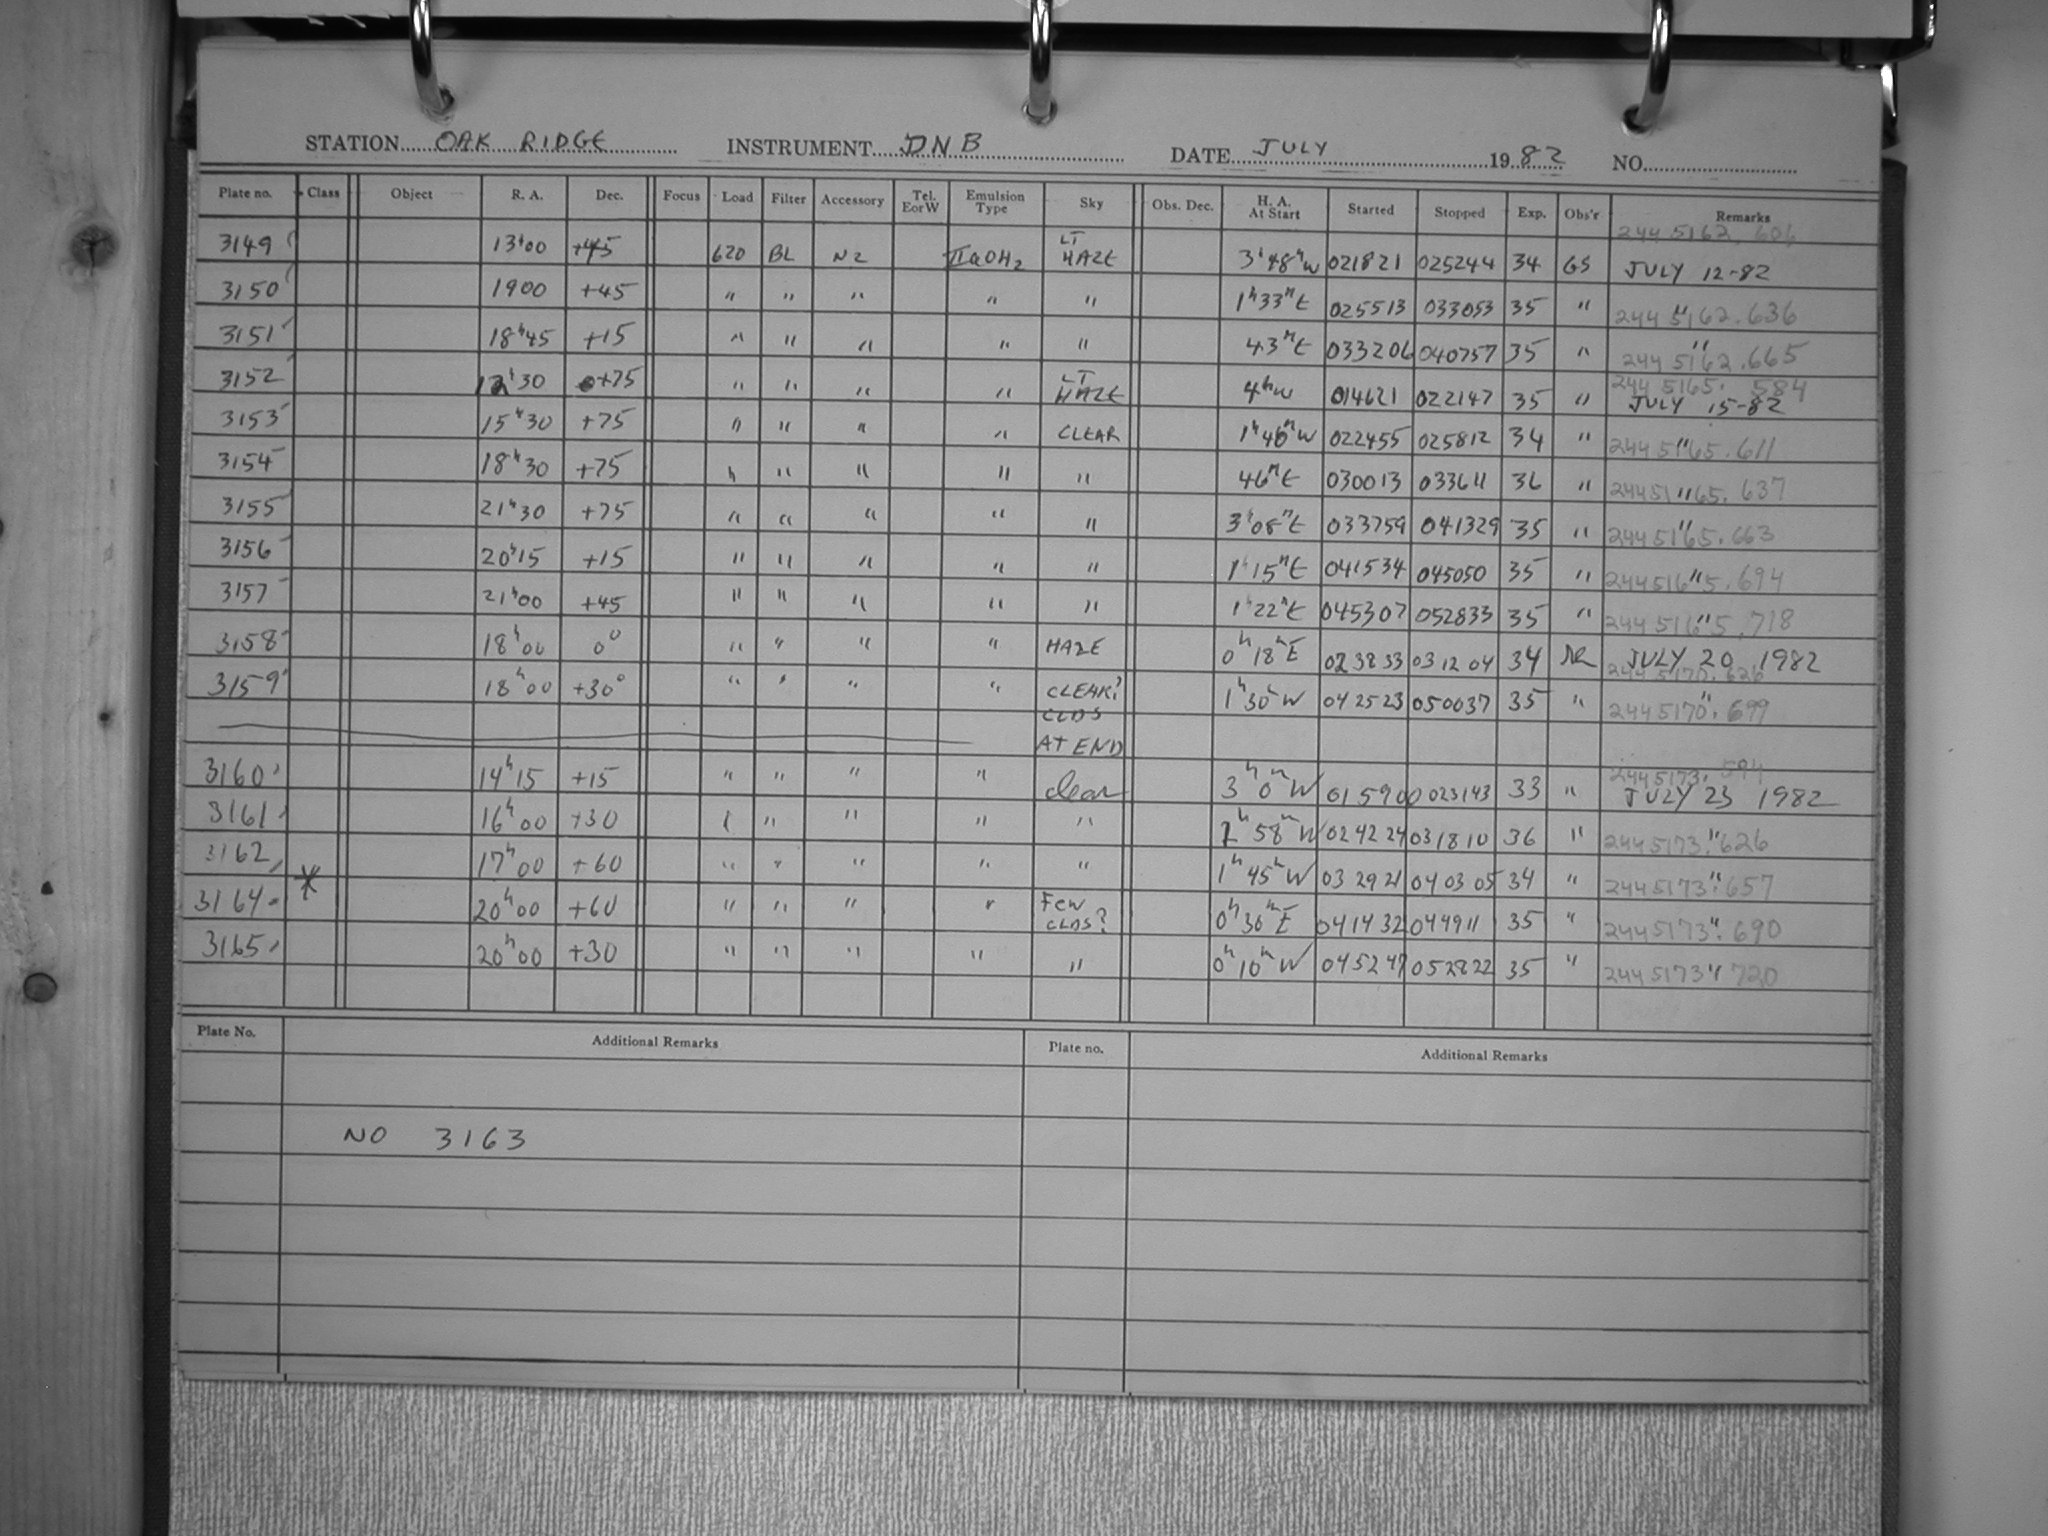 STATION OAK RIDGE INSTRUMENT DNB DATE JULY 1982 NO.
Plate no. Class Object R. A. Dec. Focus Load Filter Accessory Tel. EorW Emulsion Type Sky Obs. Dec. H. A. At Start Started Stopped Exp. Obs'r Remarks
3149 13h00 +45 620 BL N2 IIaOH2 LT HAZE 3h48mW 021821 025244 34 GS 2445162.606 JULY 12-82
3150 1900 +45 " " " " " 1h33mE 025513 033053 35 " " 2445162.636
3151 18h45 +15 " " " " " 43mE 033206 040757 35 " " 2445162.665
3152 12h30 +75 " " " " LT HAZE 4hW 014621 022147 35 " 2445165.584 JULY 15-82
3153 15h30 +75 " " " " CLEAR 1h46mW 022455 025812 34 " " 2445165.611
3154 18h30 +75 " " " " " 46mE 030013 033611 36 " " 2445165.637
3155 21h30 +75 " " " " " 3h08mE 033759 041329 35 " " 2445165.663
3156 20h15 +15 " " " " " 1h15mE 041534 045050 35 " " 2445165.694
3157 21h00 +45 " " " " " 1h22mE 045307 052833 35 " " 2445165.718
3158 18h00 0° " " " " HAZE 0h18mE 023833 031204 34 JULY 20 1982 2445170.626
3159 18h00 +30° " " " " CLEAR? CLDS AT END 1h30mW 042523 050037 35 " " 2445170.699
3160 14h15 +15 " " " " clear 3h0mW 015900 023143 33 " 2445173.594 JULY 23 1982
3161 16h00 +30 " " " " 58mW 024224 031810 36 " " 2445173.626
3162 17h00 +60 " " " " " 1h45mW 032921 040305 34 " " 2445173.657
3164 * 20h00 +60 " " " " FEW CLDS? 0h30mE 041432 044911 35 " " 2445173.690
3165 20h00 +30 " " " " " 0h10mW 045247 052822 35 " " 2445173.720
Plate No. Additional Remarks Plate no. Additional Remarks
NO 3163